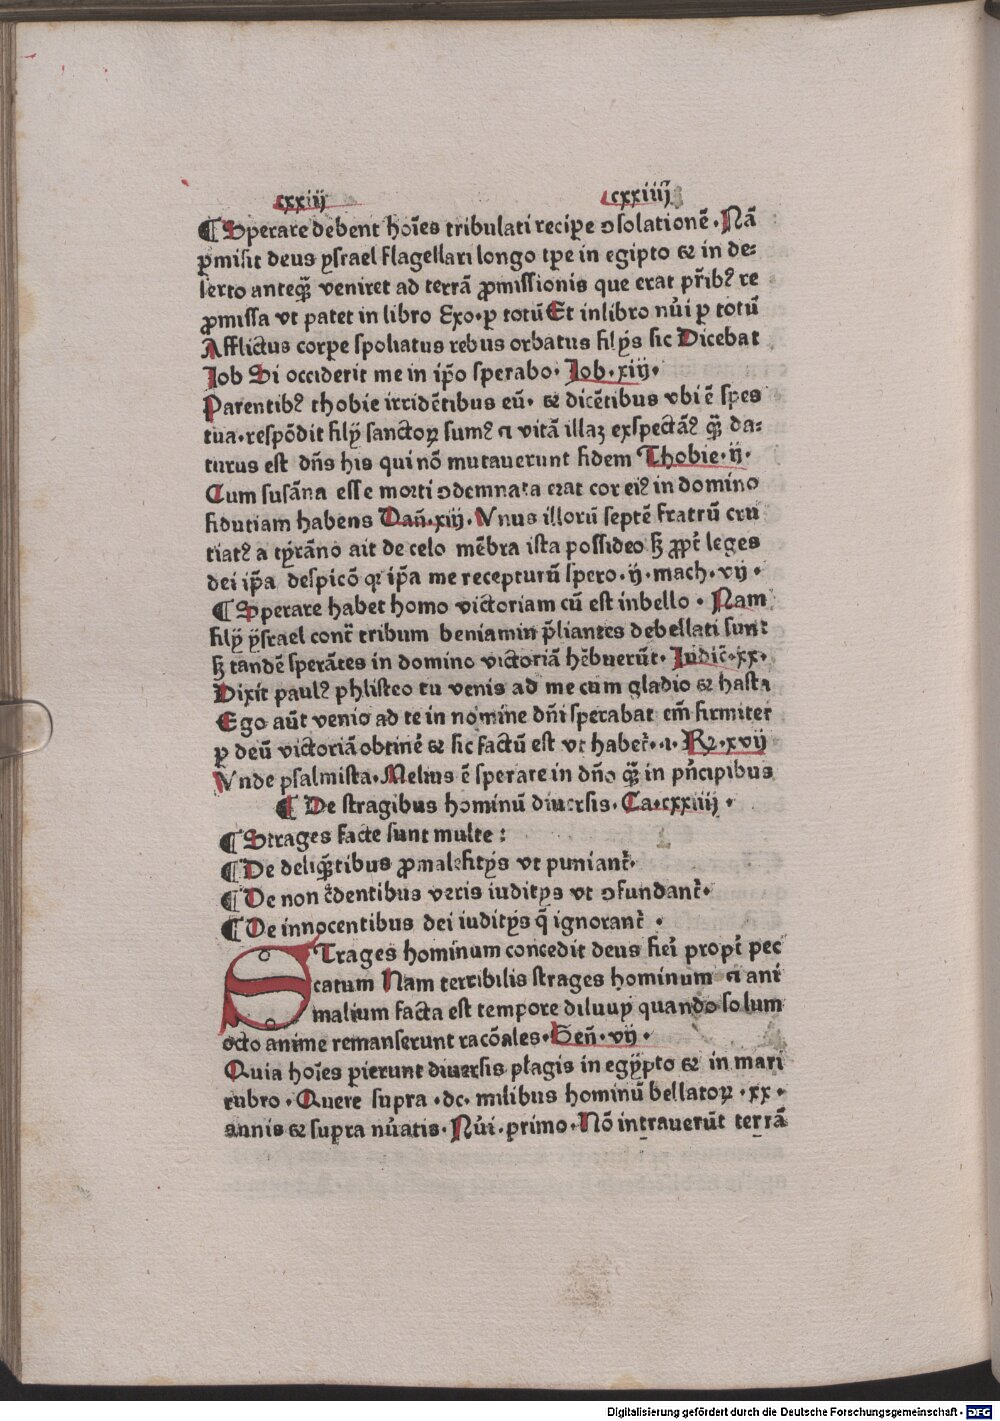 cxxiij cxxiiij
¶ Sperare debent hoīes tribulati recipe ↄsolationē. Nā
ꝓmisit deus ysrael flagellari longo tꝑe in egipto ⁊ in de⸗
serto anteqꝫ̄ veniret ad terrā ꝓmissionis que erat pr̄ibꝰ re
ꝓmissa vt patet in libro Exo. ꝑ totū Et in libro nūi ꝑ totū
Afflictus corꝑe spoliatus rebus orbatus filÿs sic Dicebat
Job Si occiderit me in ip̄o sperabo. Job. xiij.
Parentibꝰ thobie irridētibus eū. ⁊ dicētibus vbi ē spes
tua. respōdit filÿ sanctoꝝ sumꝰ ⁊ vitā illaꝫ exspectāꝰ qꝫ̄ da⸗
turus est dn̄s his qui nō mutauerunt fidem Thobie. ij.
Cum susāna esse morti ↄdemnata erat cor eiꝰ in domino
fidutiam habens Dan̄. xiij. Vnus illorū septē fratrū cru
tiatꝰ a tÿrāno ait de celo mēbra ista possideo sꝫ ꝓpt̄ leges
dei ip̄a despicō qꝛ ip̄a me recepturū spero. ij. mach. vij.
¶ Sperare habet homo victoriam cū est in bello. Nam
filÿ ÿsrael cont̄ tribum beniamin p̄liantes debellati sunt
sꝫ tandē sperātes in domino victoriā hēbuerūt. Judic̄. xx.
Dixit paulꝰ phlisteo tu venis ad me cum gladio ⁊ hasta
Ego aūt venio ad te in nomine dn̄i sperabat em̄ firmiter
ꝑ deū victoriā obtine᷑ ⁊ sic factū est vt habet᷑. .i. Rꝫ. xvij
Vnde psalmista. Melius ē sperare in dn̄o qꝫ̄ in pn̄cipibus
¶ De stragibus hominū diuersis. Ca. cxxiiij.
¶ Strages facte sunt multe :
¶ De deliqꝫ̄tibus ꝓ malefitÿs vt puniant᷑.
¶ De non c̄dentibus veris iuditÿs vt ↄfundant᷑.
¶ De innocentibus dei iuditÿs q̄ ignorant᷑.
STrages hominum concedit deus fieri propt̄ pec
catum Nam terribilis strages hominum ⁊ ani
malium facta est tempore diluuÿ quando solum
octo anime remanserunt racōales. Gen̄. vij.
Quia hoīes ꝑierunt diuersis plagis in egÿpto ⁊ in mari
rubro. Quere supra. dc. milibus hominū bellatoꝝ. xx.
annis ⁊ supra nūatis. Nūi. primo. Nō intrauerūt terrā
Digitalisierung gefördert durch die Deutsche Forschungsgemeinschaft - DFG